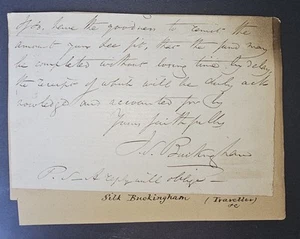 have the goodness to remit the
amount you see fit, that the fund may
be completed without losing time by delay
the receipt of which will be duly ack
nowledged and accounted for by
Yours faithfully
J. S. Buckingham
P. S. A reply will oblige
Silk Buckingham (Traveller)